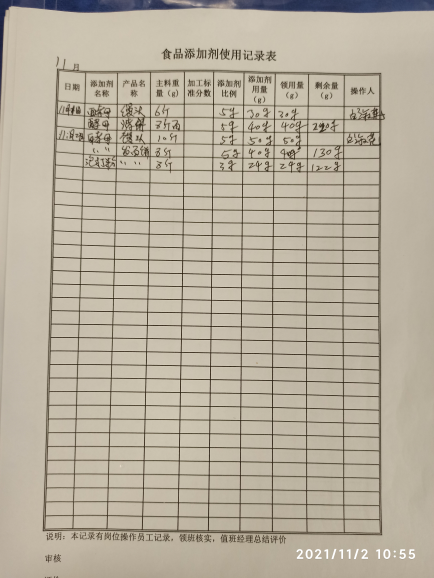 食品添加剂使用记录表
11月
日期 添加剂名称 产品名称 主料重量（g） 加工标准分数 添加剂比例 添加剂用量（g） 领用量（g） 剩余量（g） 操作人
11月1日 酵母 6斤 5g 30g 30g
酵母 5g 40g 40g
11月2日 酵母 10斤 5g 50g 50g
〃 发面饼 8斤 5g 40g 40g 130g
泡打粉 〃 〃 8斤 3g 24g 24g 122g
说明：本记录有岗位操作员工记录，领班核实，值班经理总结评价
审核
2021/11/2 10:55